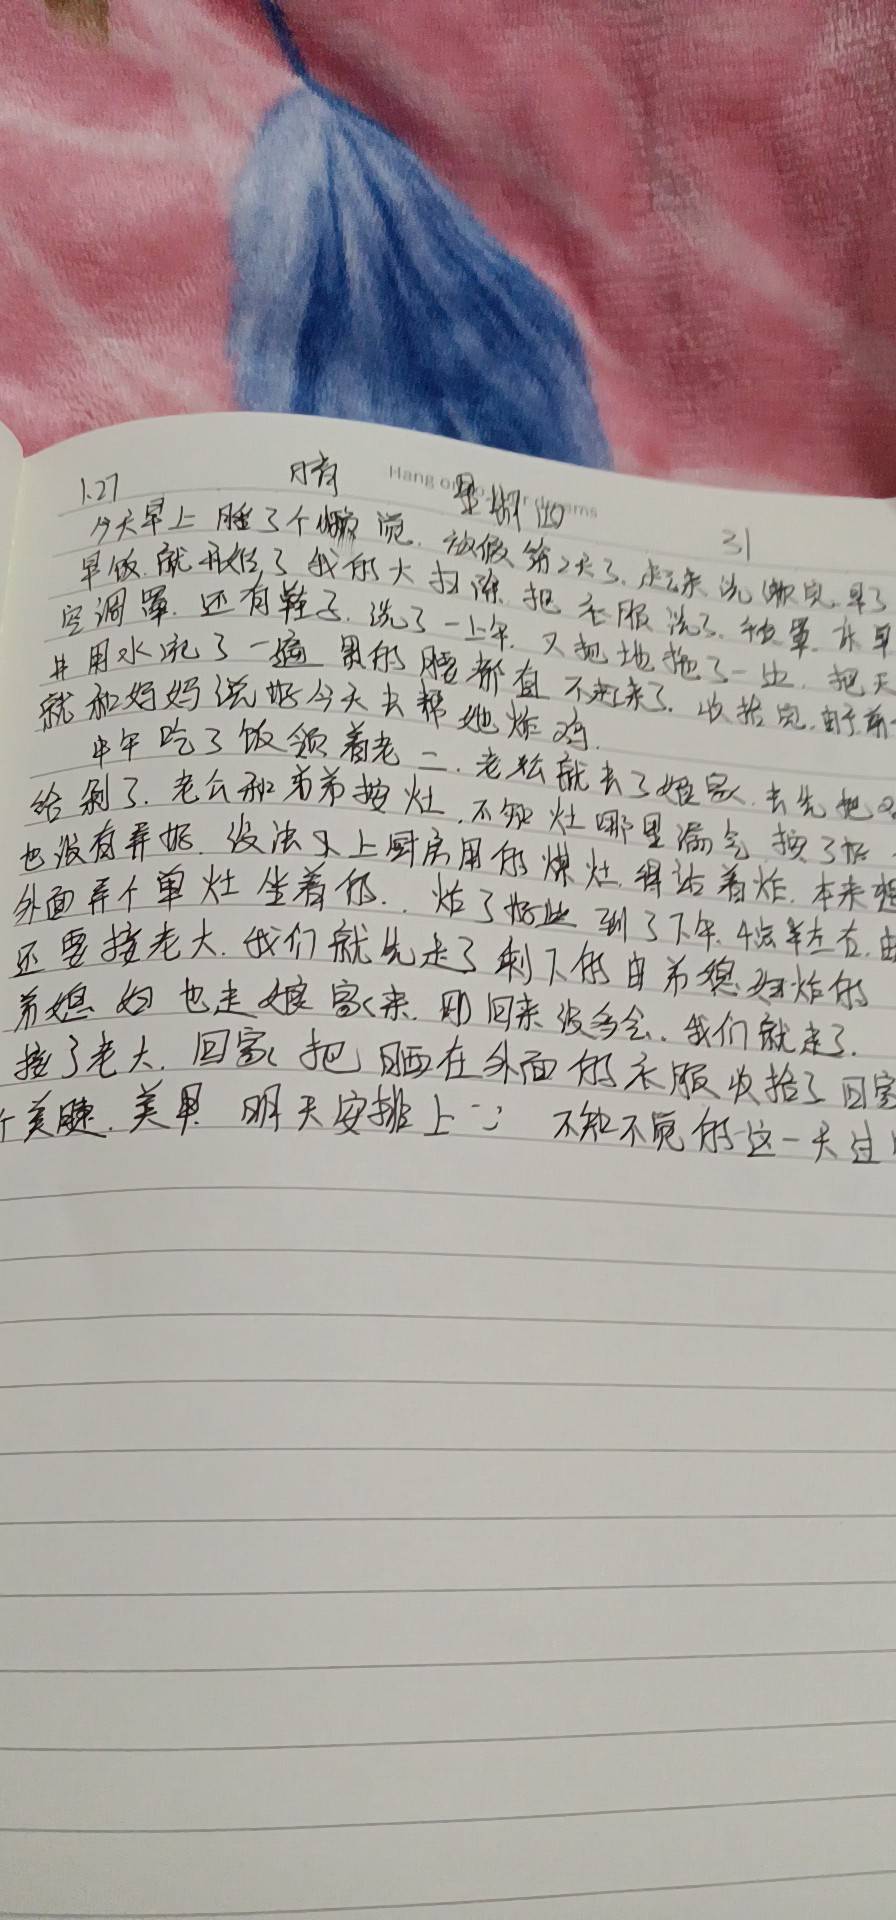 1.27 晴 星期四
Hang on to
31
今天早上睡了个懒觉. 放假第2天了. 起来洗漱完. 早
早饭. 就开始了我的大扫除 把衣服洗了.
空调罩. 还有鞋子. 洗了一上午. 又把地拖了一
并用水 了一遍 累的腰都直不起来了. 收拾完.
就和妈妈说好今天去帮她炸鸡.
中午吃了饭领着老二. 老公就去了娘家. 去先把
给剁了. 老公和弟弟按灶. 不知灶哪里漏气 按了好
也没有弄好. 没法只上厨房用的煤灶. 得站着炸. 本来想
外面弄个单灶坐着的.. 炸了好些 到了下午. 4点半左右. 由
还要接老大. 我们就先走了 剩下的由弟媳妇炸的
弟媳妇也走娘家来. 刚回来没多会. 我们就走了.
接了老大. 回家把晒在外面的衣服收拾了 回家
个美睫. 美甲 明天安排上 不知不觉的这一天过